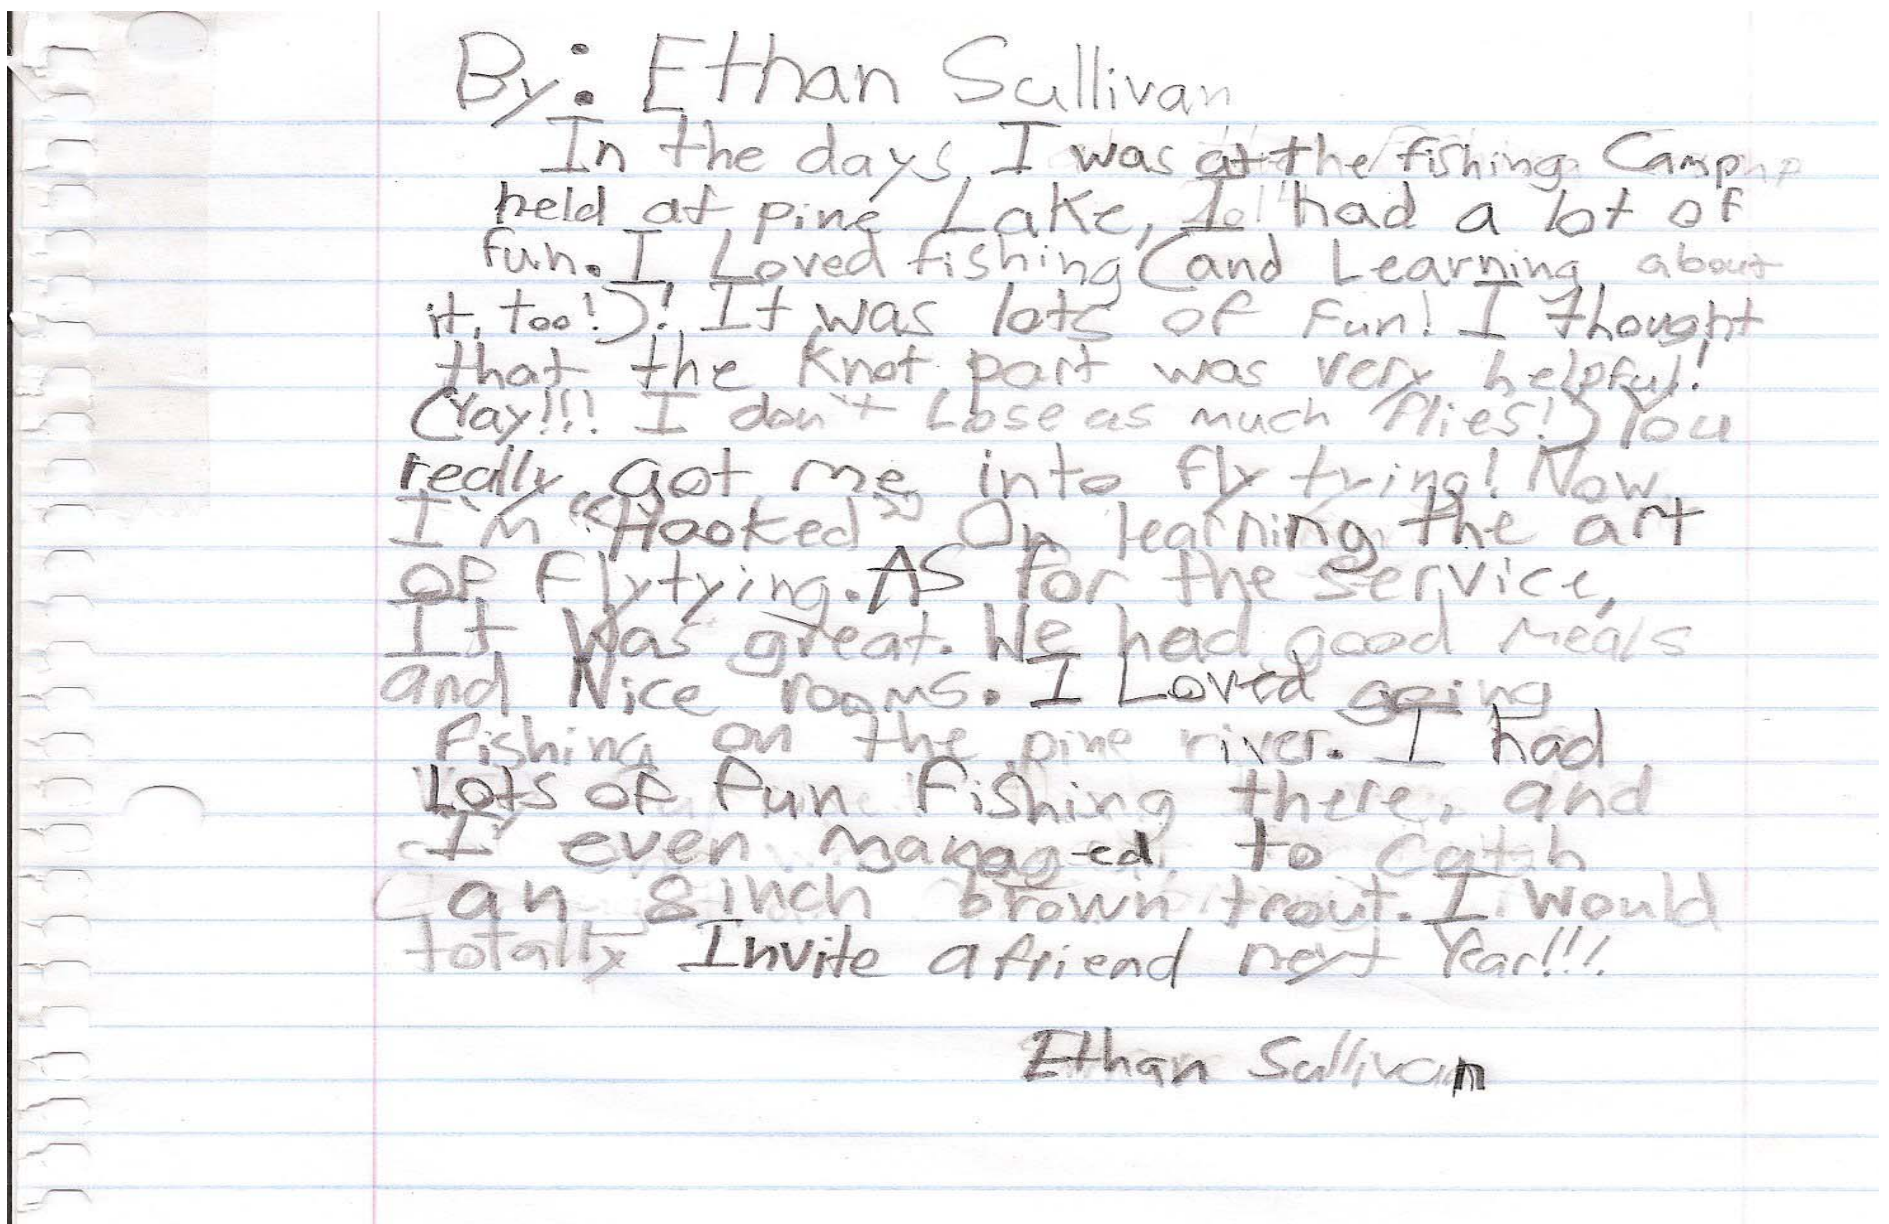 By: Ethan Sullivan
In the days I was at the fishing Camp
held at pine Lake, I had a lot of
fun. I Loved fishing (and Learning about
it, too!)! It was lots of Fun! I thought
that the knot part was very helpful!
(Yay!!! I don't Lose as much flies!) You
really got me into fly tying! Now
I'm "Hooked" On learning the art
of Flytying. AS for the service,
It Was great. We had good meals
and Nice rooms. I Loved going
fishing on the pine river. I had
Lots of fun fishing there, and
I even managed to catch
an 8 inch brown trout. I would
totally Invite a friend next Year!!!
Ethan Sullivan